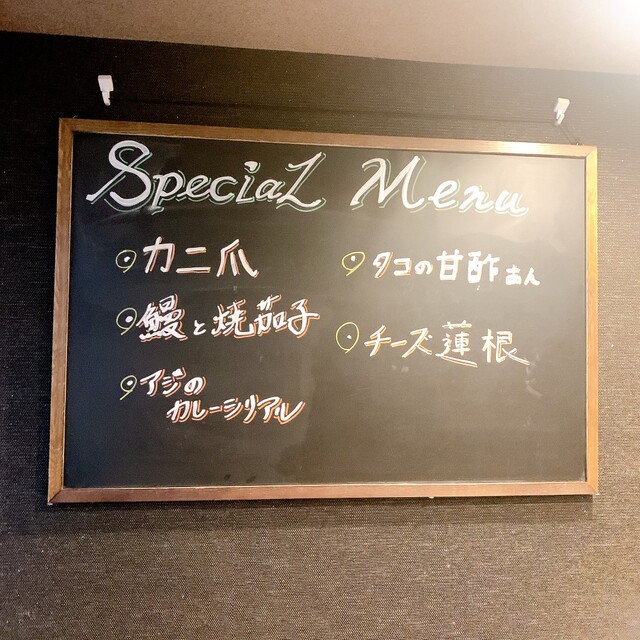 Special Menu
カニ爪
鰻と焼茄子
アジの
カレーシリアル
タコの甘酢あん
チーズ蓮根